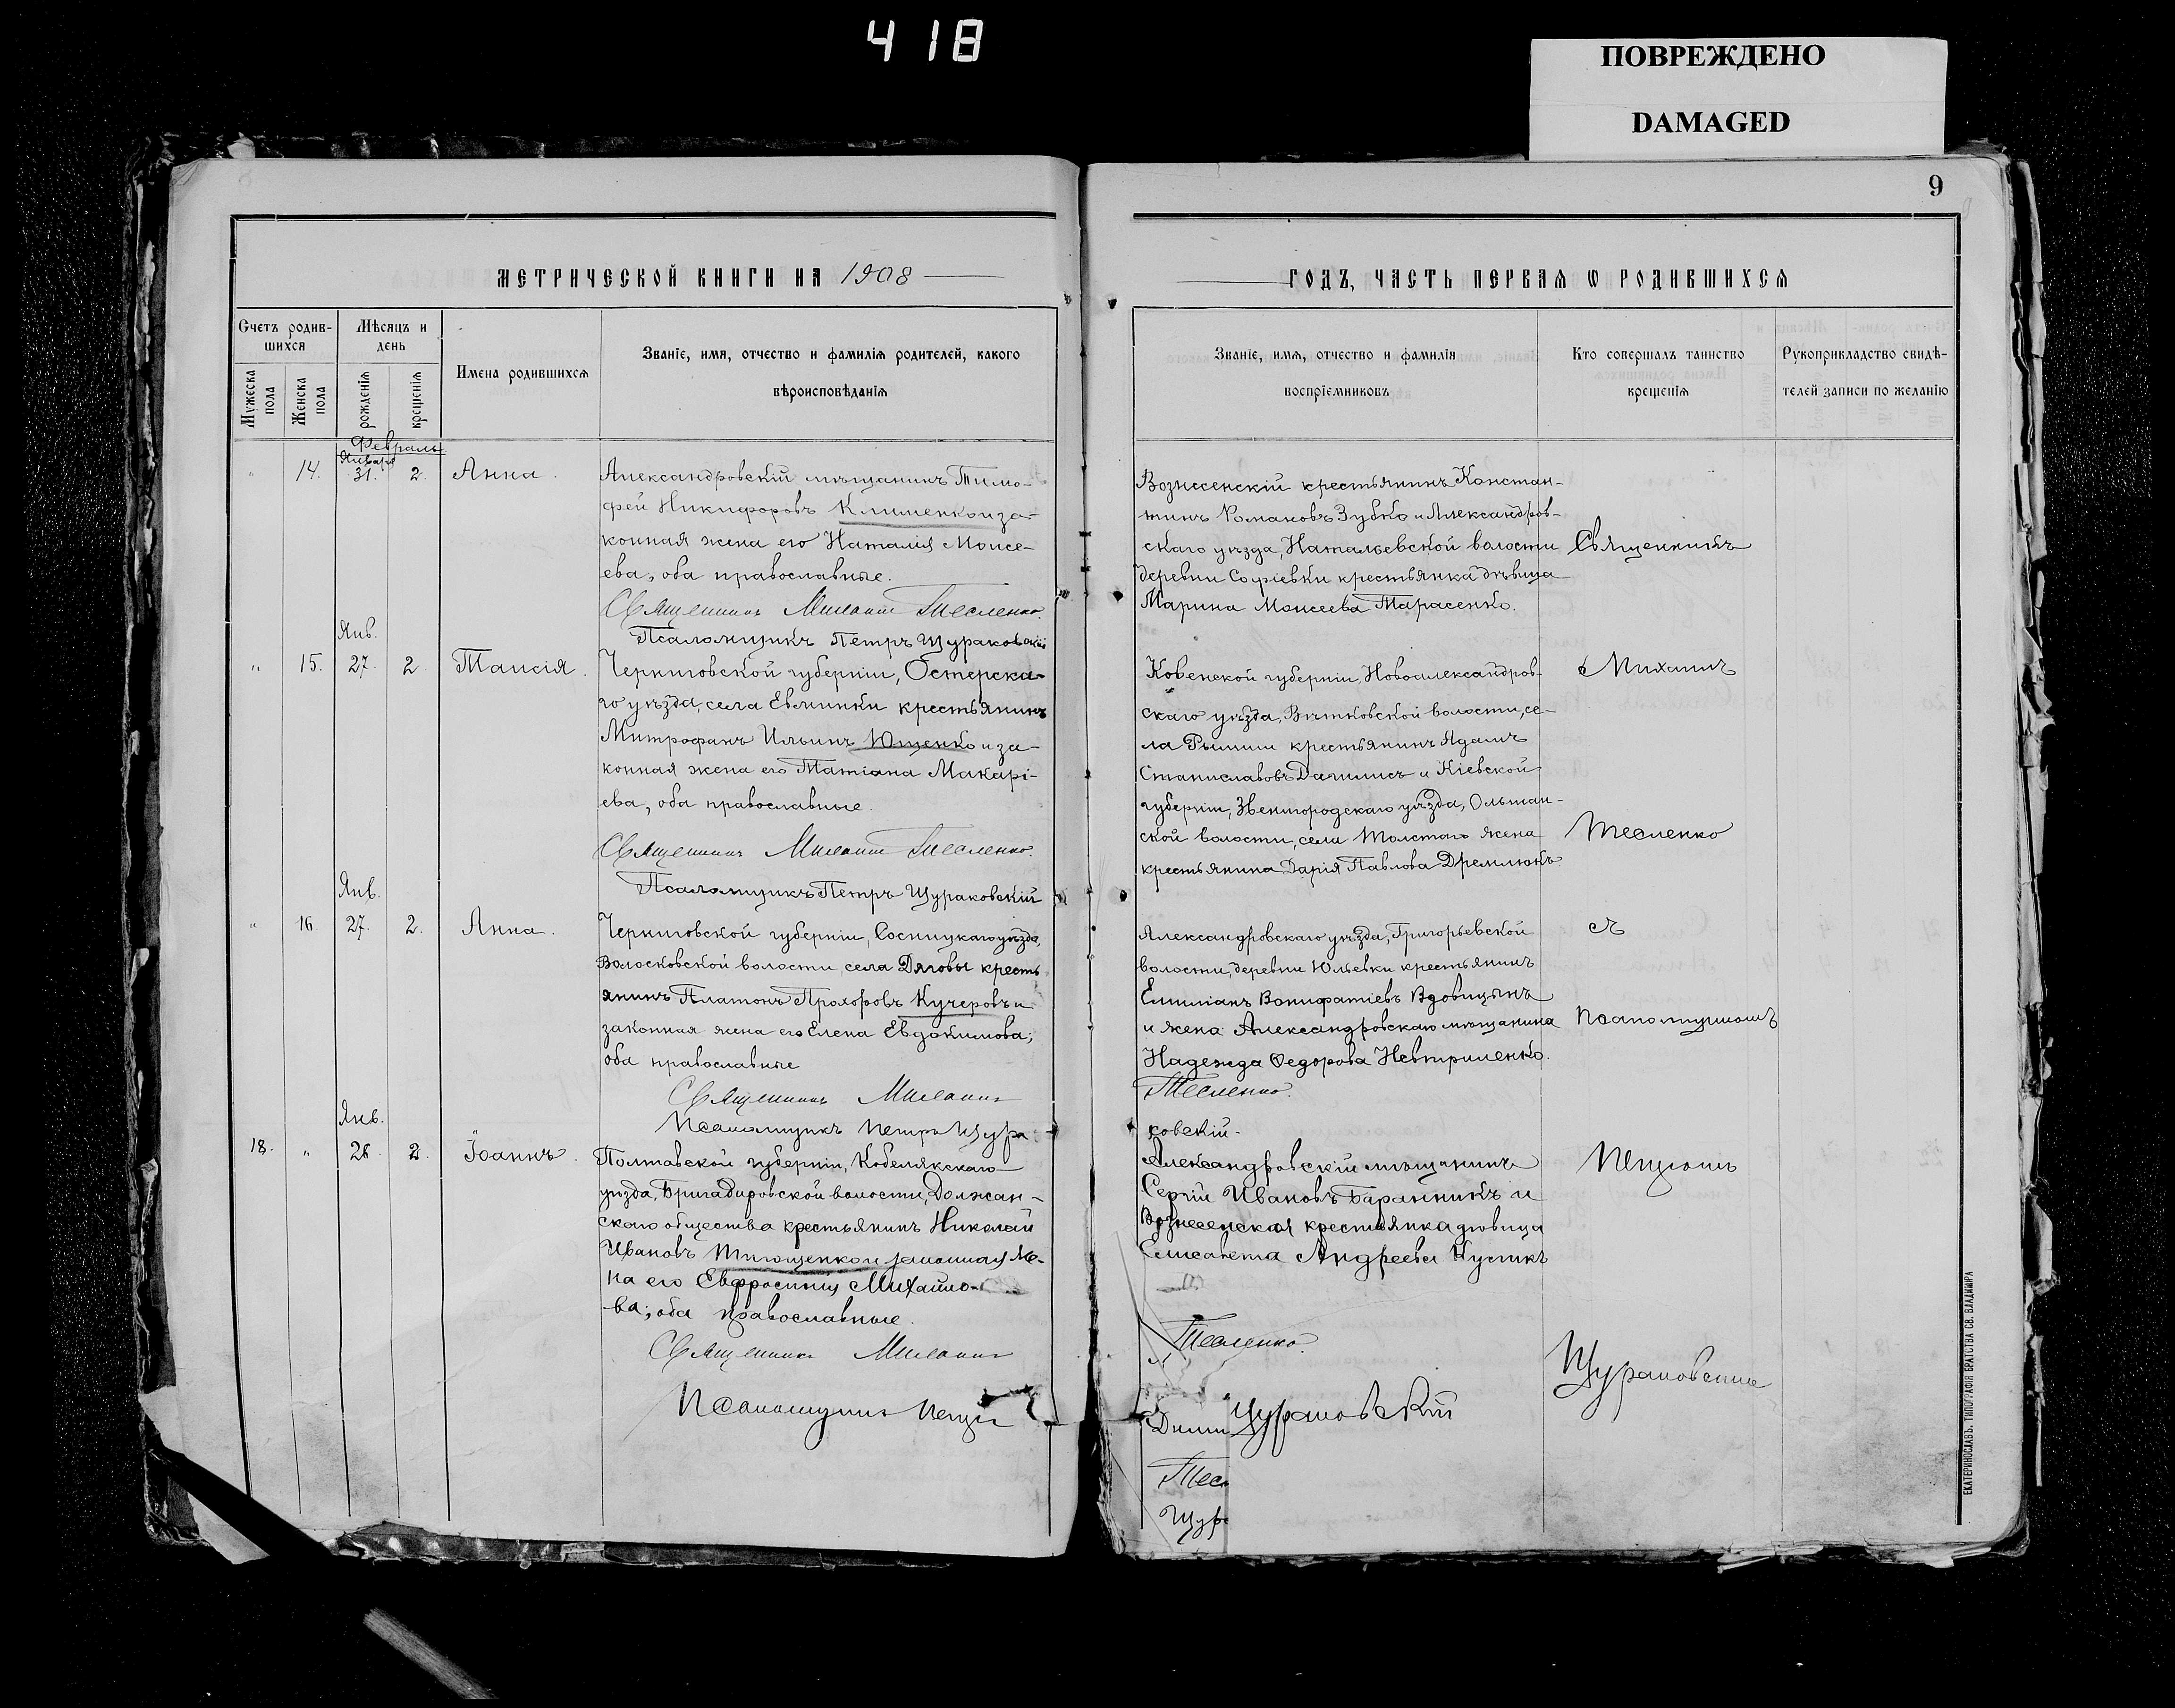 418
ПОВРЕЖДЕНО
DAMAGED
9
МЕТРИЧЕСКОЙ КНИГИ НА 1908
ГОДЪ, ЧАСТЬ ПЕРВАЯ Ѡ РОДИВШИХСЯ
Счетъ родив-
шихся
Мужеска
пола
Женска
пола
Мѣсяцъ и
день
рожденїѧ
крещенїѧ
Имена родившихсѧ
Званїе, имя, отчество и фамилїѧ родителей, какого
вѣроисповѣданїѧ
Званїе, имѧ, отчество и фамилїя
воспрїемниковъ
Кто совершалъ таинство
крещенїѧ
Рукоприкладство свидѣ-
телей записи по желанїю
Февраль
Января
" 14. 31. 2. Анна.
Александровскій мѣщанинъ Тимо-
фей Никифоровъ Клименко и за-
конная жена его Наталія Моисе-
ева, оба православные.
Священникъ Михаилъ Тесленко.
Псаломщикъ Петръ Щураковскій
Вознесенскій крестьянинъ Констан-
тинъ Романовъ Зубко и Александров-
скаго уѣзда, Натальевской волости
деревни Софіевки крестьянка дѣвица
Марина Моисеева Тарасенко.
Священникъ
Янв.
" 15. 27. 2. Таисія.
Черниговской губерніи, Остерска-
го уѣзда, села Евминки крестьянинъ
Митрофанъ Ильинъ Ющенко и за-
конная жена его Татіана Макарі-
ева, оба православные.
Священникъ Михаилъ Тесленко.
Псаломщикъ Петръ Щураковскій
Ковенской губерніи, Новоалександров-
скаго уѣзда, волости, се-
ла крестьянинъ Адамъ
Станиславовъ и Кіевской
губерніи, Звенигородскаго уѣзда, Ольшан-
ской волости, села Толстаго жена
крестьянина Дарія Павлова Дремлюкъ
Михаилъ
Тесленко
Янв.
" 16. 27. 2. Анна.
Черниговской губерніи, Сосницкаго уѣзда,
Волосковской волости, села Дяговы кресть
янинъ Платонъ Прохоровъ Кучеровъ и
законная жена его Елена Евдокимова;
оба православные
Священникъ Михаилъ
Псаломщикъ Петръ Щура
Александровскаго уѣзда, Григорьевской
волости, деревни Юльевки крестьянинъ
Емиліанъ Вонифатіевъ Вдовицынъ
и жена Александровскаго мѣщанина
Надежда Ѳедорова Невтриленко.
Тесленко.
ковскій.
съ
Псаломщикомъ
Янв.
18. " 28. 2. Іоаннъ.
Полтавской губерніи, Кобелякскаго
уѣзда, Бригадировской волости, Должан-
скаго общества крестьянинъ Николай
Ивановъ Тимощенко и законная же-
на его Евфросинія Михайло-
-ва; оба православные.
Священникъ Михаилъ
Псаломщикъ Петръ
Александровскій мѣщанинъ
Сергій Ивановъ Баранникъ и
Вознесенская крестьянка дѣвица
Елисавета Андреева
Тесленко.
Щураковскій
Петромъ
Щураковскимъ
Тесл
Щур
ЕКАТЕРИНОСЛАВЪ. ТИПОГРАФІЯ БРАТСТВА СВ. ВЛАДИМІРА